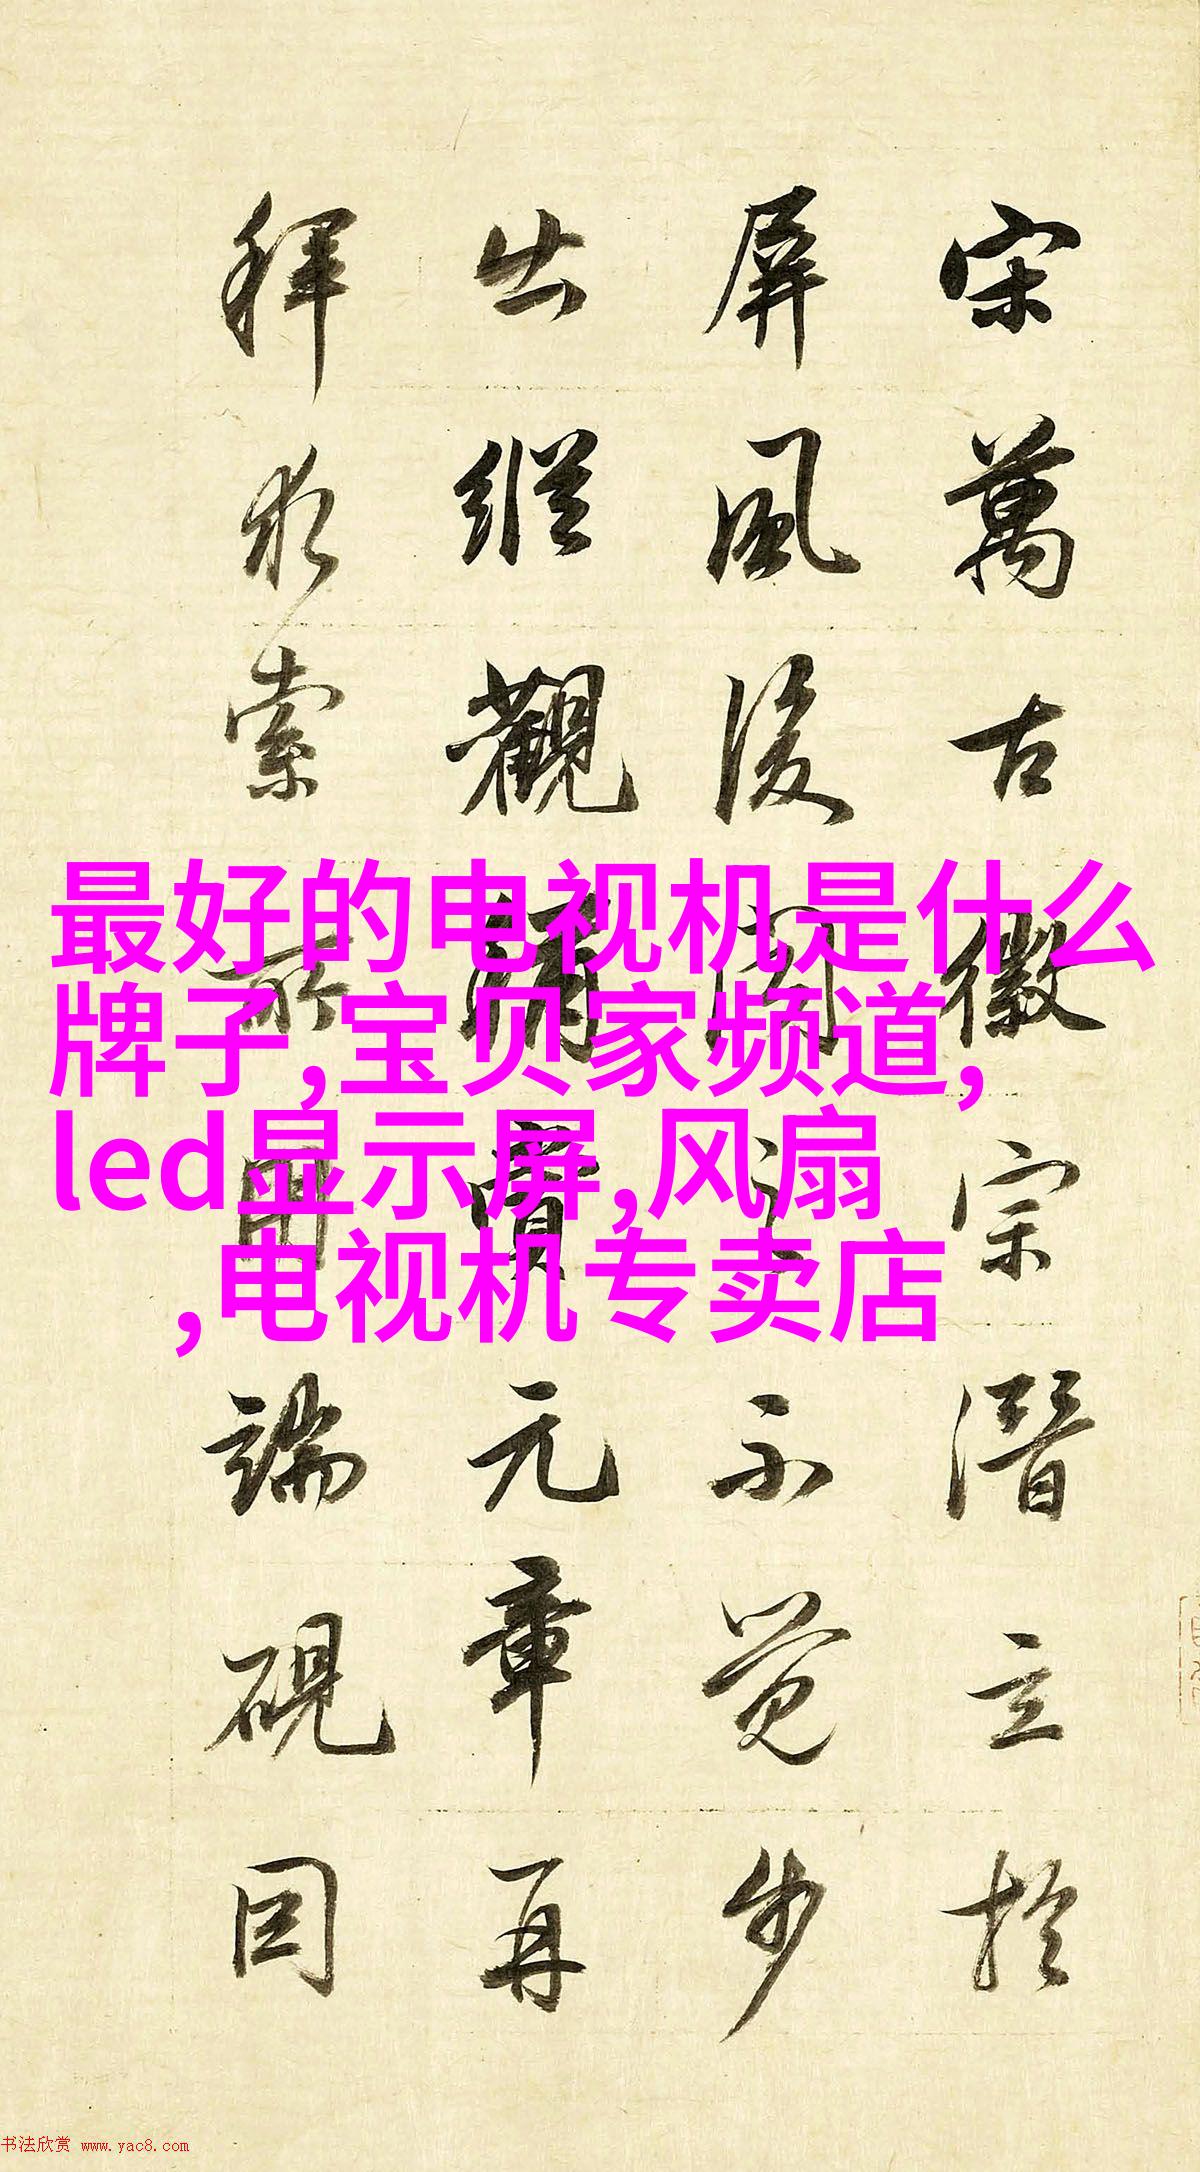 宋萬古徽宗潛立於
屏風後閱之不覺步
出縱觀稱賞元章再
拜求索所用端硯因
最好的电视机是什么
牌子,宝贝家频道,
led显示屏,风扇
,电视机专卖店
书法欣赏 www.yac8.com